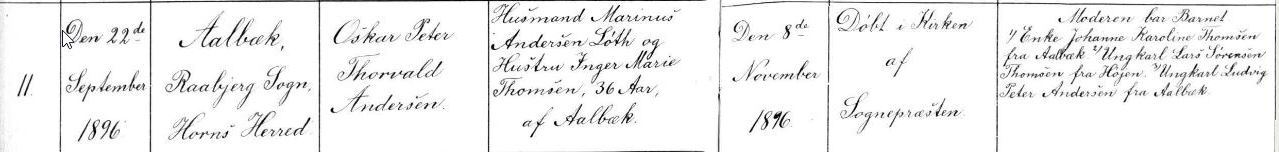 11.
Den 22de
September
1896
Aalbæk,
Raabjerg Sogn,
Horns Herred.
Oskar Peter
Thorvald
Andersen.
Husmand Marinus
Andersen Löth og
Hustru Inger Marie
Thomsen, 36 Aar,
af Aalbæk.
Den 8de
November
1896.
Döbt i Kirken
af
Sognepræsten.
Moderen bar Barnet
1/ Enke Johanne Karoline Thomsen
fra Aalbæk 2/ Ungkarl Lars Sörensen
Thomsen fra Höjen. 3/ Ungkarl Ludvig
Peter Andersen fra Aalbæk.